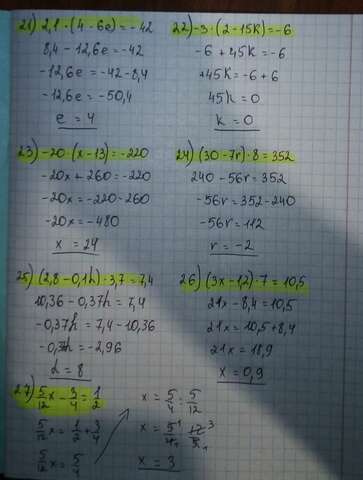 21) 2,1 · (4 - 6e) = -42
8,4 - 12,6e = -42
-12,6e = -42 - 8,4
-12,6e = -50,4
e = 4
22) -3 · (2 - 15k) = -6
-6 + 45k = -6
+45k = -6 + 6
45k = 0
k = 0
23) -20 · (x - 13) = -220
-20x + 260 = -220
-20x = -220 - 260
-20x = -480
x = 24
24) (30 - 7r) · 8 = 352
240 - 56r = 352
-56r = 352 - 240
-56r = 112
r = -2
25) (2,8 - 0,1h) · 3,7 = 7,4
10,36 - 0,37h = 7,4
-0,37h = 7,4 - 10,36
-0,37h = -2,96
h = 8
26) (3x - 1,2) · 7 = 10,5
21x - 8,4 = 10,5
21x = 10,5 + 8,4
21x = 18,9
x = 0,9
27) 5/12 x - 3/4 = 1/2
5/12 x = 1/2 + 3/4
5/12 x = 5/4
x = 5/4 : 5/12
x = 5¹/4₁ · 12³/5₁
x = 3